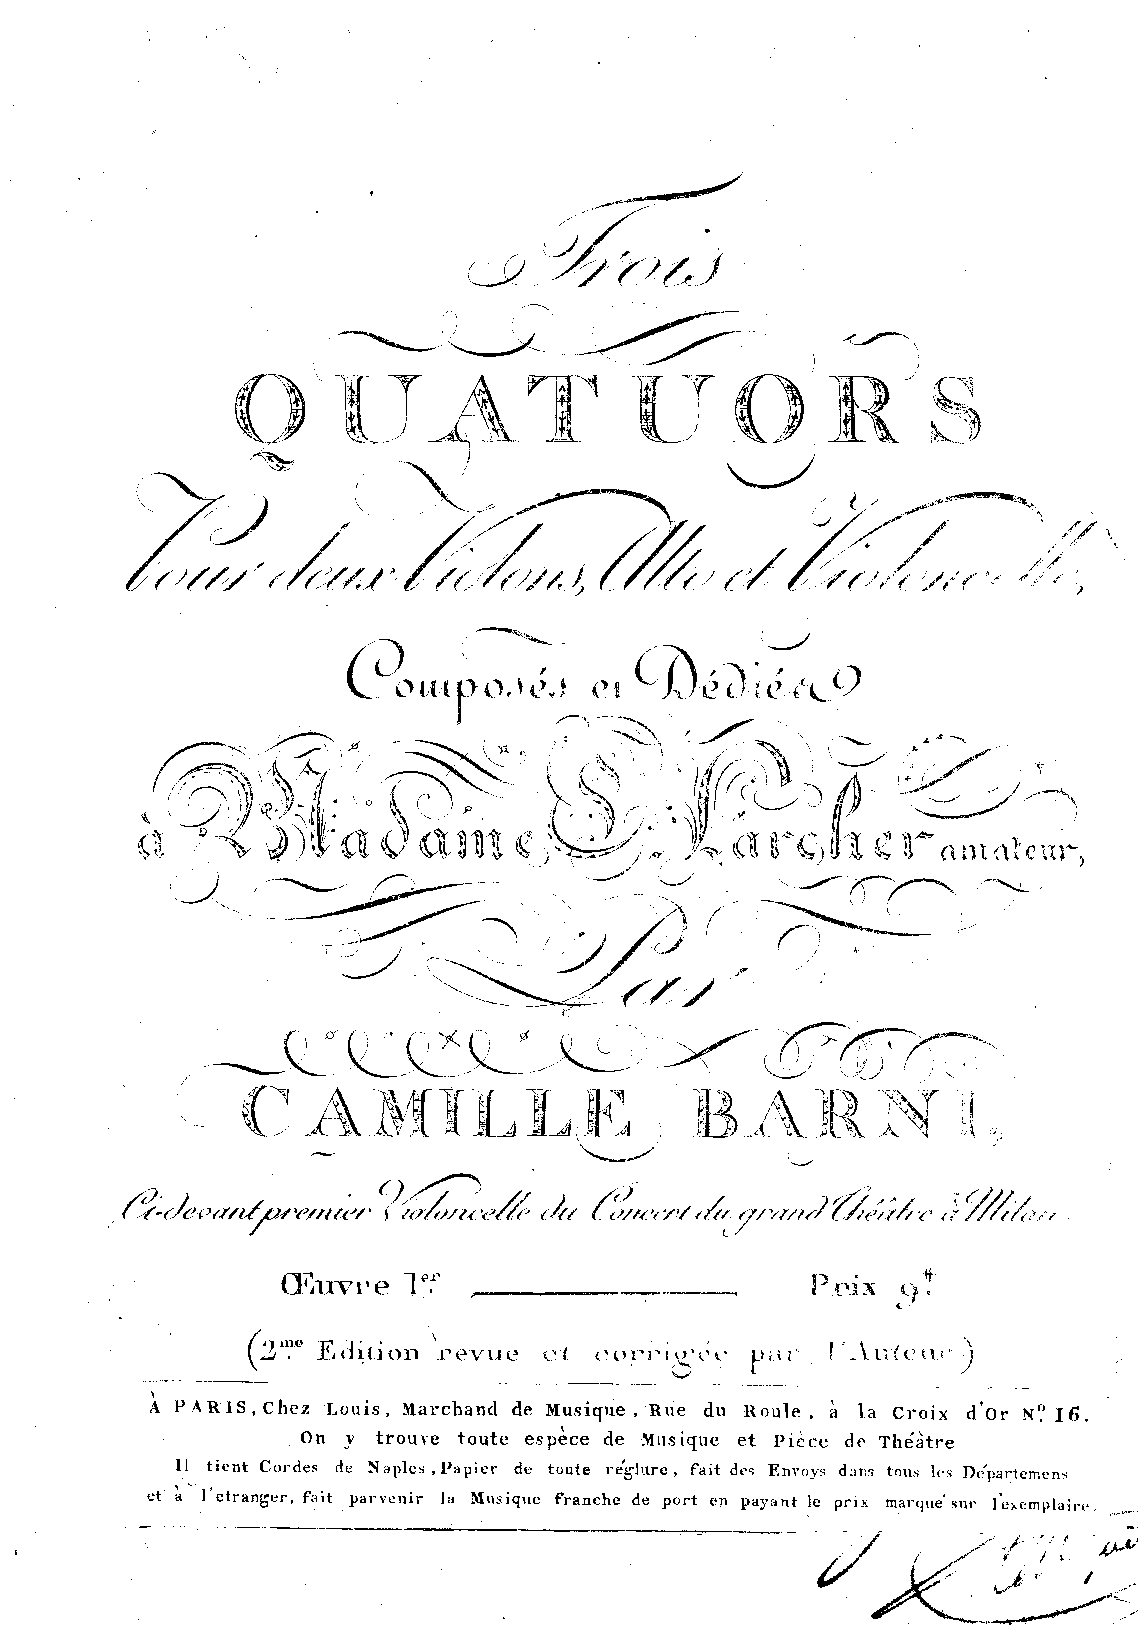 Trois
QUATUORS
Pour deux Violons, Alto et Violoncelle,
Composés et Dédiés
à Madame C. Larcher amateur,
Par
CAMILLE BARNI,
Ci-devant premier Violoncelle du Concert du grand Théâtre à Milan.
Œuvre 1er. Prix 9tt.
(2me. Edition revue et corrigée par l'Auteur)
À PARIS, Chez Louis, Marchand de Musique, Rue du Roule, à la Croix d'Or No. 16.
On y trouve toute espèce de Musique et Pièce de Théâtre
Il tient Cordes de Naples, Papier de toute réglure, fait des Envoys dans tous les Départemens
et à l'etranger, fait parvenir la Musique franche de port en payant le prix marqué sur l'exemplaire.